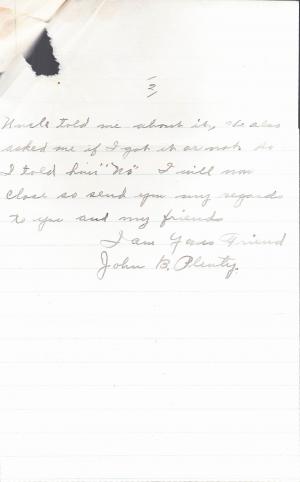 2
Uncle told me about it, He also
asked me if I got it or not. So
I told him "No" I will now
Close so send you my regards
to you and my friends
I am Your Friend
John B. Plenty.